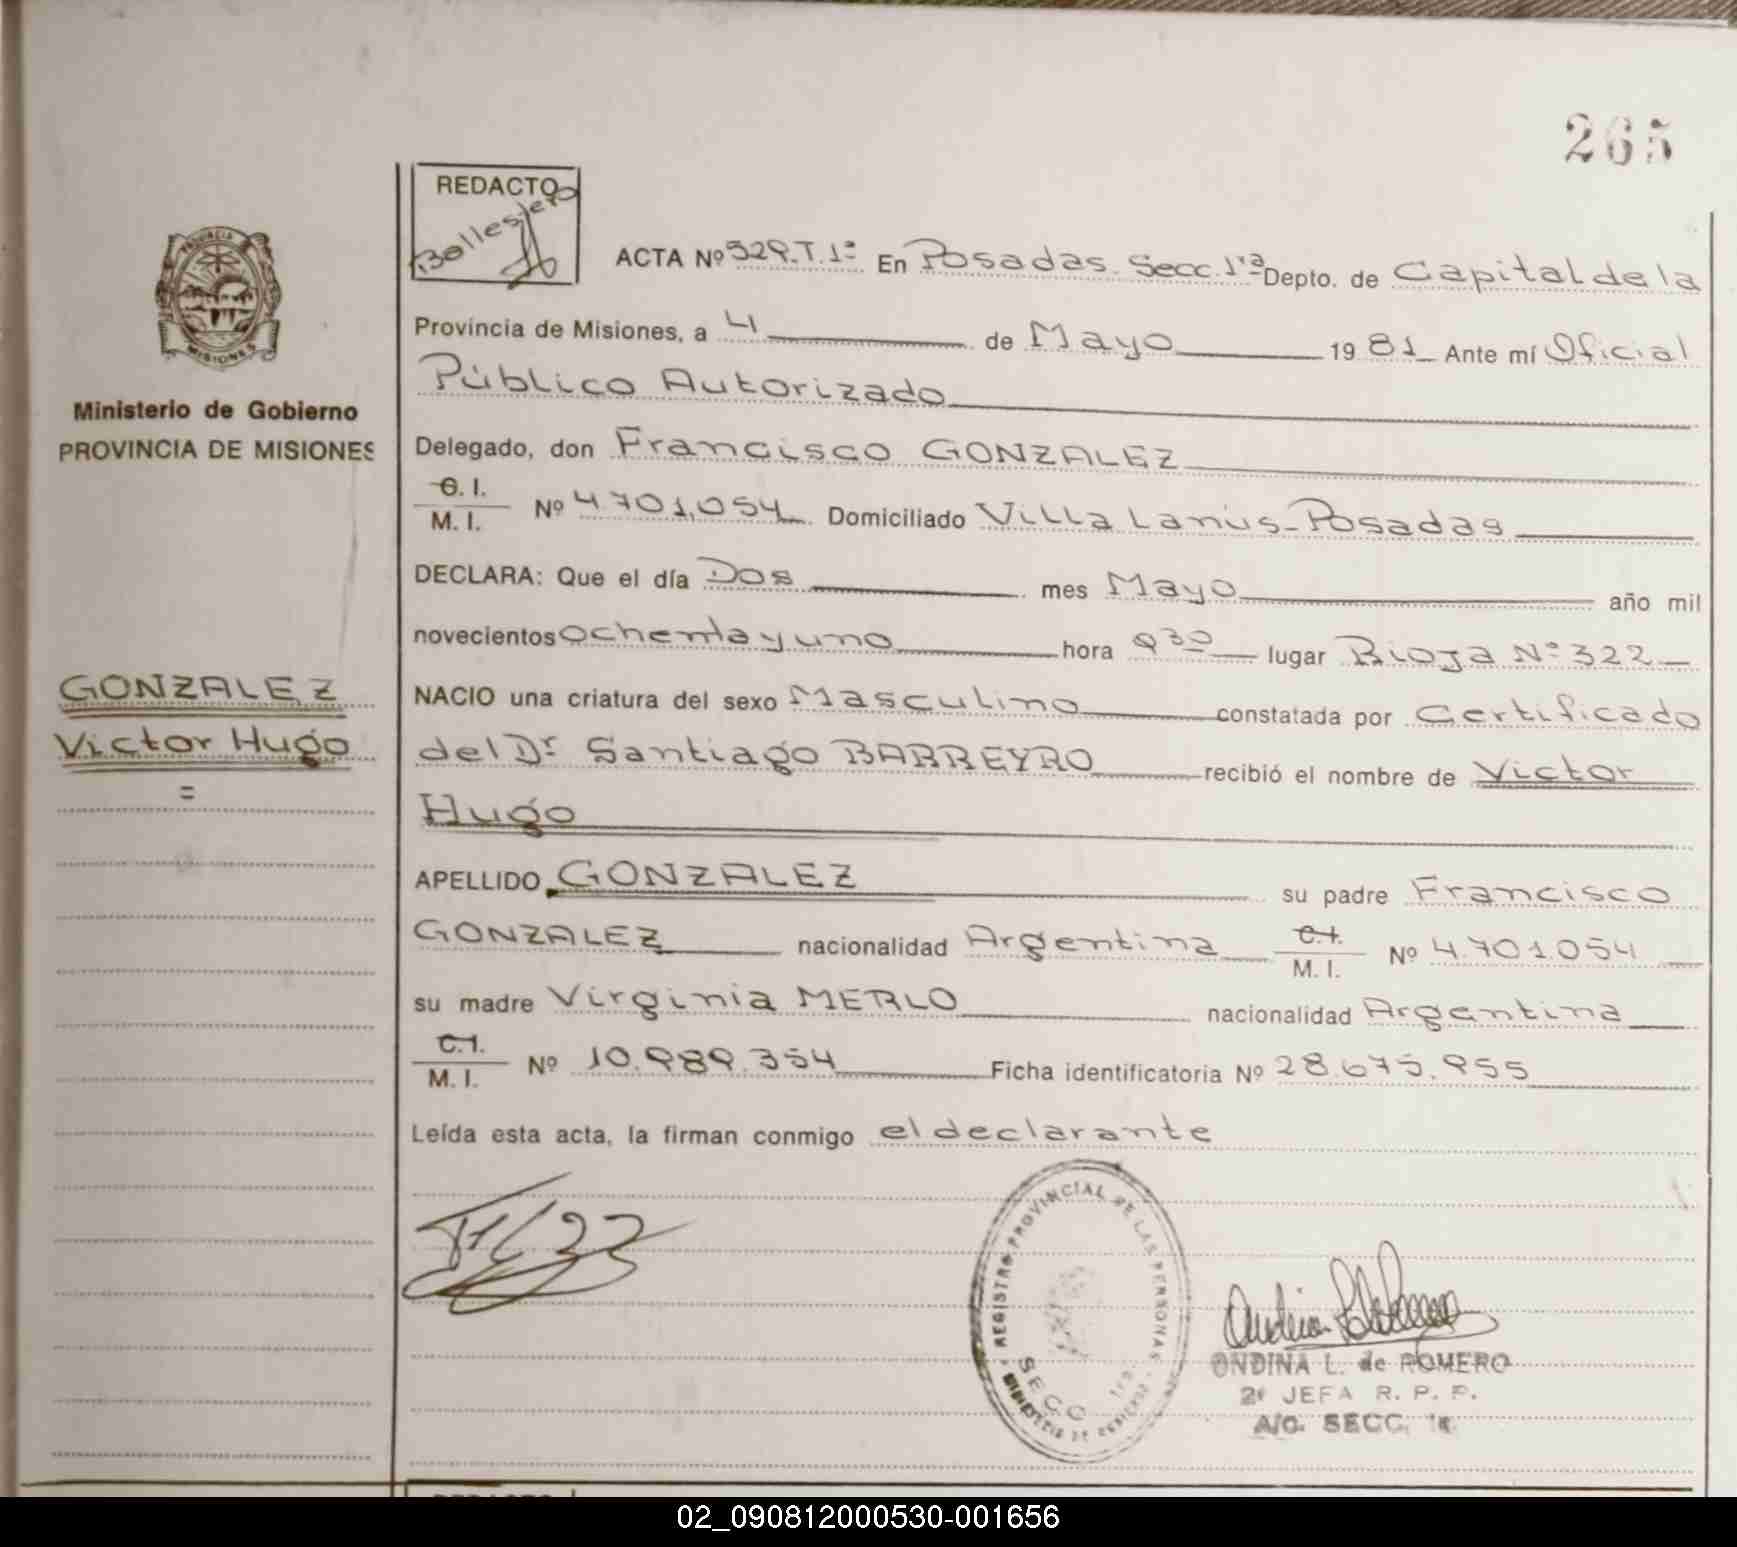 265
REDACTO
Ballestero
ACTA Nº 529.T.1º En Posadas. Secc. 1ra Depto. de Capital de la
Provincia de Misiones, a 4 de Mayo 1981 Ante mí Oficial
Público Autorizado
Delegado, don Francisco GONZALEZ
C. I.
M. I. Nº 4.701.054 Domiciliado Villa Lanús-Posadas
DECLARA: Que el día Dos mes Mayo año mil
novecientos ochentayuno hora 9 30 lugar Rioja Nº 322
NACIO una criatura del sexo Masculino constatada por Certificado
del Dr Santiago BARREYRO recibió el nombre de Victor
Hugo
APELLIDO GONZALEZ su padre Francisco
GONZALEZ nacionalidad Argentina C. I. M. I. Nº 4.701.054
su madre Virginia MERLO nacionalidad Argentina
C. I.
M. I. Nº 10.989.354 Ficha identificatoria Nº 28.675.955
Leída esta acta, la firman conmigo el declarante
PROVINCIA
MISIONES
Ministerio de Gobierno
PROVINCIA DE MISIONES
GONZALEZ
Victor Hugo
=
REGISTRO PROVINCIAL DE LAS PERSONAS
SECC. 1ra
MINISTERIO DE GOBIERNO
ONDINA L. de ROMERO
2º JEFA R. P. P.
A/C. SECC. 1ª
02_090812000530-001656